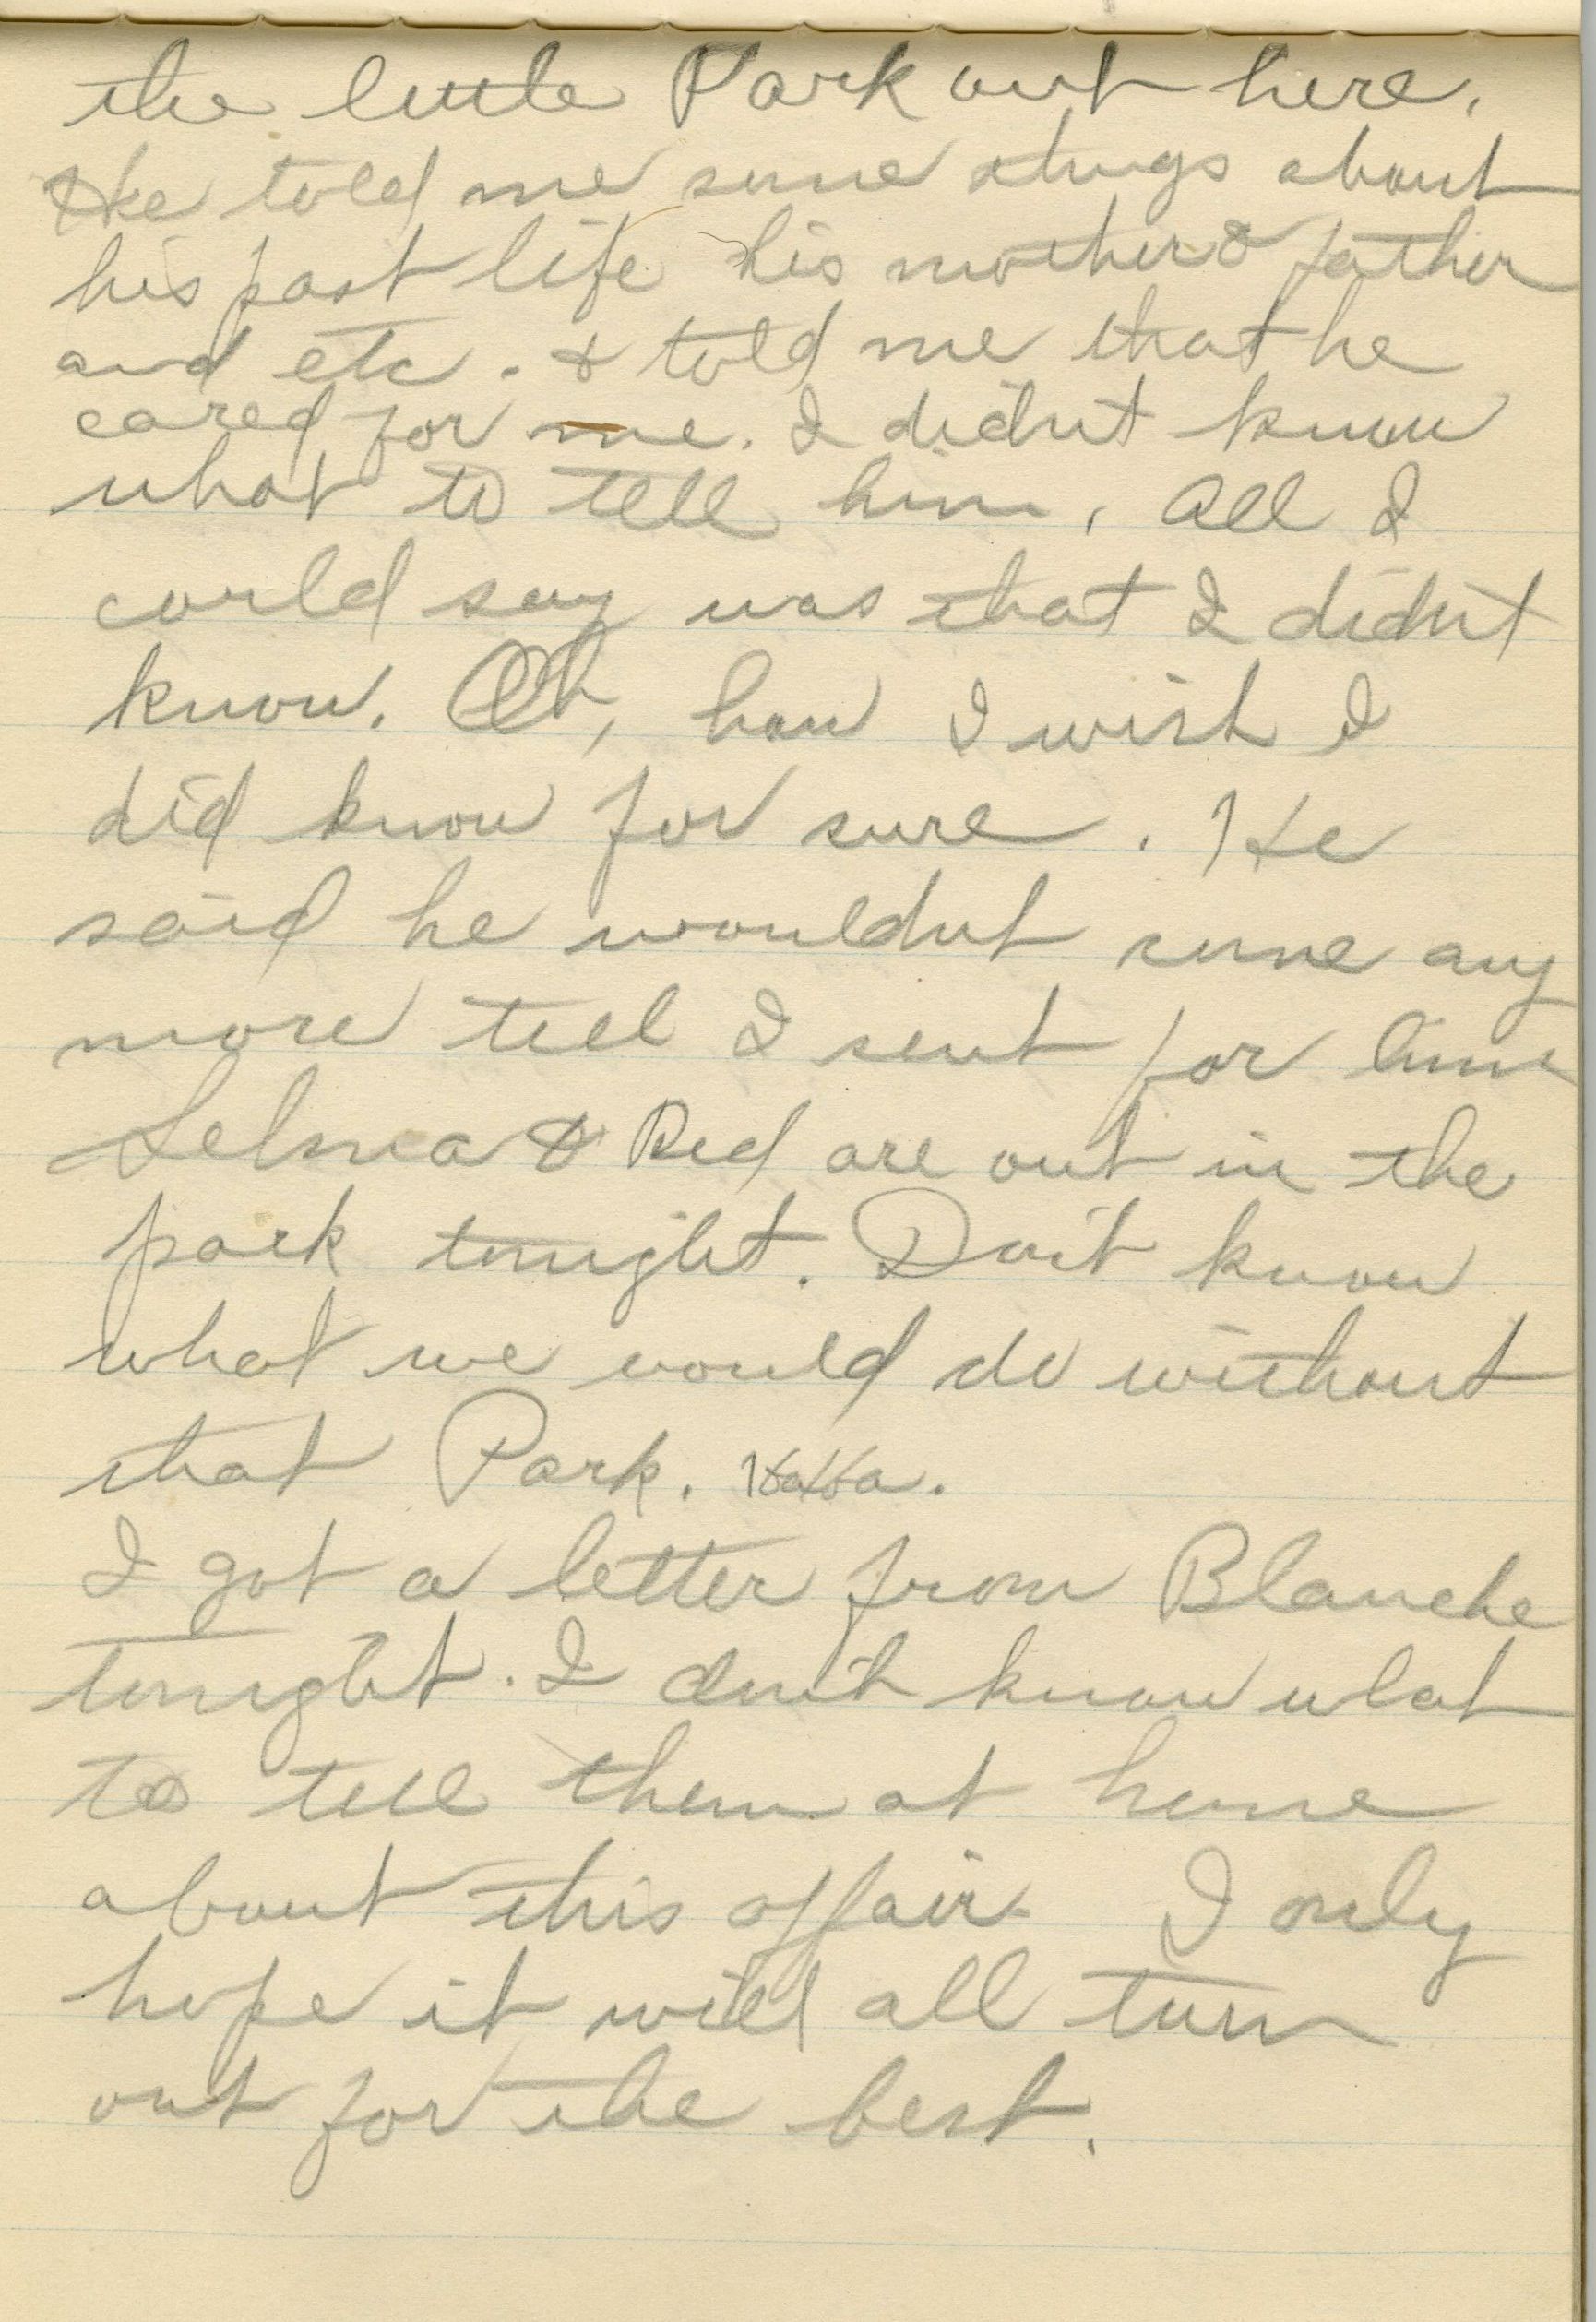 the little Park out here.
He told me some things about
his past life his mother & father
and etc. & told me that he
cared for me. I didn't know
what to tell him. All I
could say was that I didn't
know. Oh, how I wish I
did know for sure. He
said he wouldn't come any
more till I sent for him
Selma & Red are out in the
park tonight. Don't know
what we would do without
that Park. Ha Ha.
I got a letter from Blanche
tonight. I don't know what
to tell them at home
about this affair. I only
hope it will all turn
out for the best.